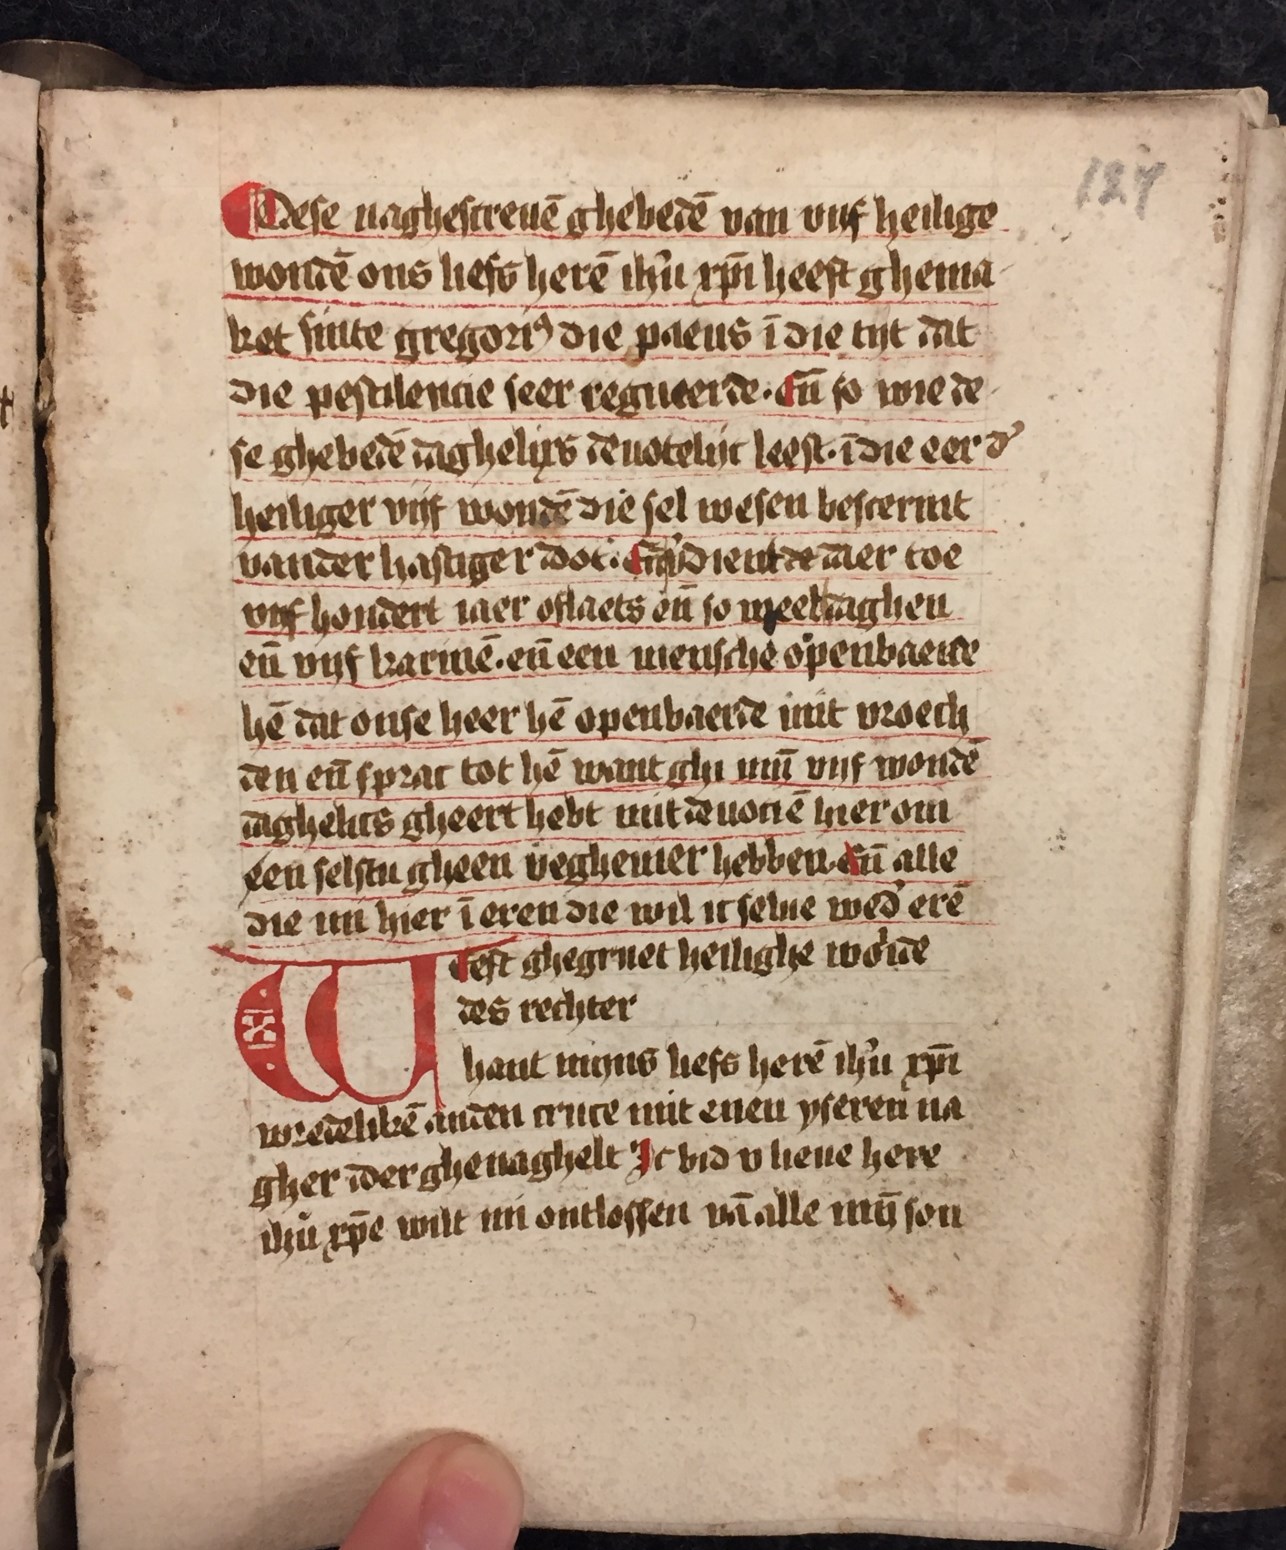 127
Dese naghescreuē ghebedē van vijf heilige
wondē ons liefs herē ihū xp̄i heeft ghema
ket sinte gregori⁹ die paeus ī die tijt dat
die pestilencie seer regneerde. eū so wie de
se ghebedē daghelixs deuotelijc leest. ī die eer d'
heiliger vijf wondē die sel wesen bescermt
vander hastiger doot. dient de daer toe
vijf hondert iaer oflaets eū so daghen
eū vijf karinē. eū een mensche openbaerde
hē dat onse heer hē openbaerde mit vroech
den eū sprac tot hē want ghi mijn̄ vijf wondē
daghelics gheert hebt mit deuociē hier om
een selstu gheen veghevier hebben. eū alle
die mi hier ī eren die wil ic selue wed' erē
Weest ghegruet heilighe wōde
des rechter
hant mijns liefs herē ihū xp̄i
wredelikē anden cruce mit enen yseren na
gher doer ghenaghelt Ic bid v lieue here
ihū xp̄e wilt mi ontlossen vā alle mij̄ son